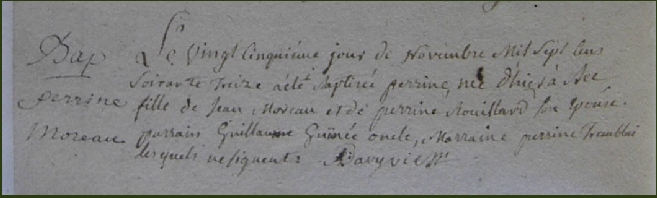 Bap
perrine
Moreau
Le vingt cinquiéme jour de Novembre Mil Sept Cens
Soixante treize a été baptisée perrine, née d'hier à
fille de Jean Moreau et de perrine Rouillard son Epouse.
parrain Guillaume oncle, Marraine perrine Tremblai
lesquels ne signents